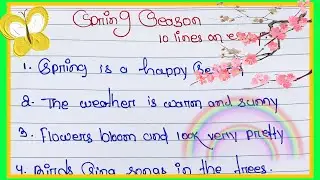 Spring Season
10 lines on
1. Spring is a happy
2. The weather is warm and sunny
3. Flowers bloom and look very pretty
4. Birds sing songs in the trees.